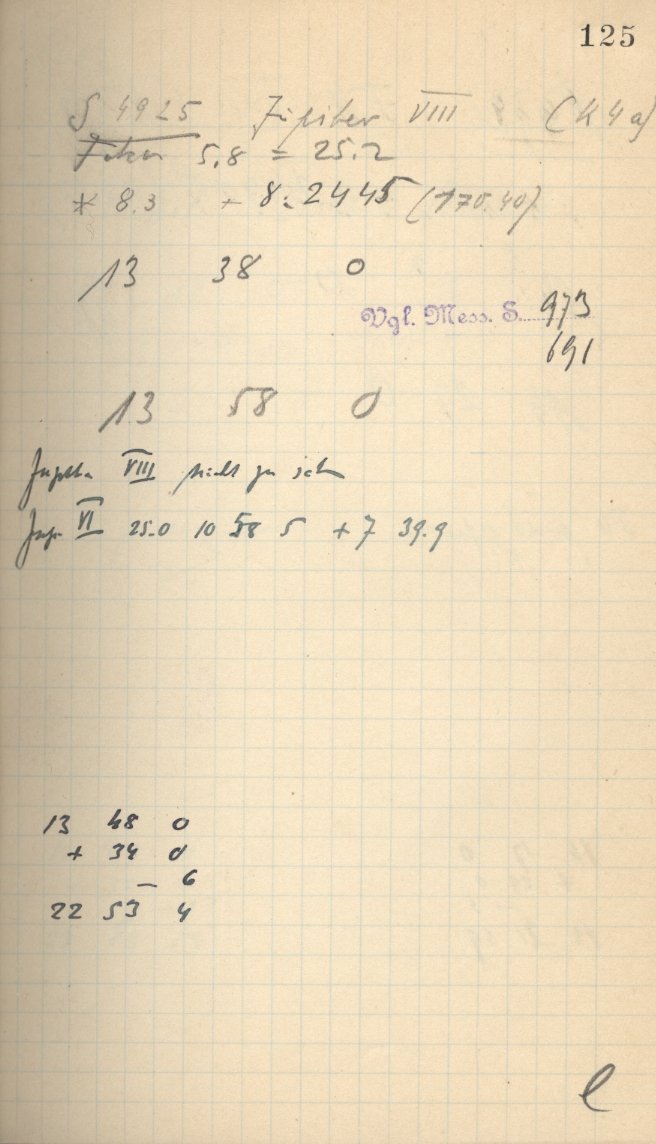 125
S 4925 Jupiter VIII (K4a)
Fokus 5.8 = 25.2
* 8.3 - 8.2445 (170.40)
13 38 0
Vgl. Mess. S. 973
691
13 58 0
Jupiter VIII nicht zu seh
Jup VI 25.0 10 58 5 +7 39.9
13 48 0
+ 34 0
- 6
22 53 4
l